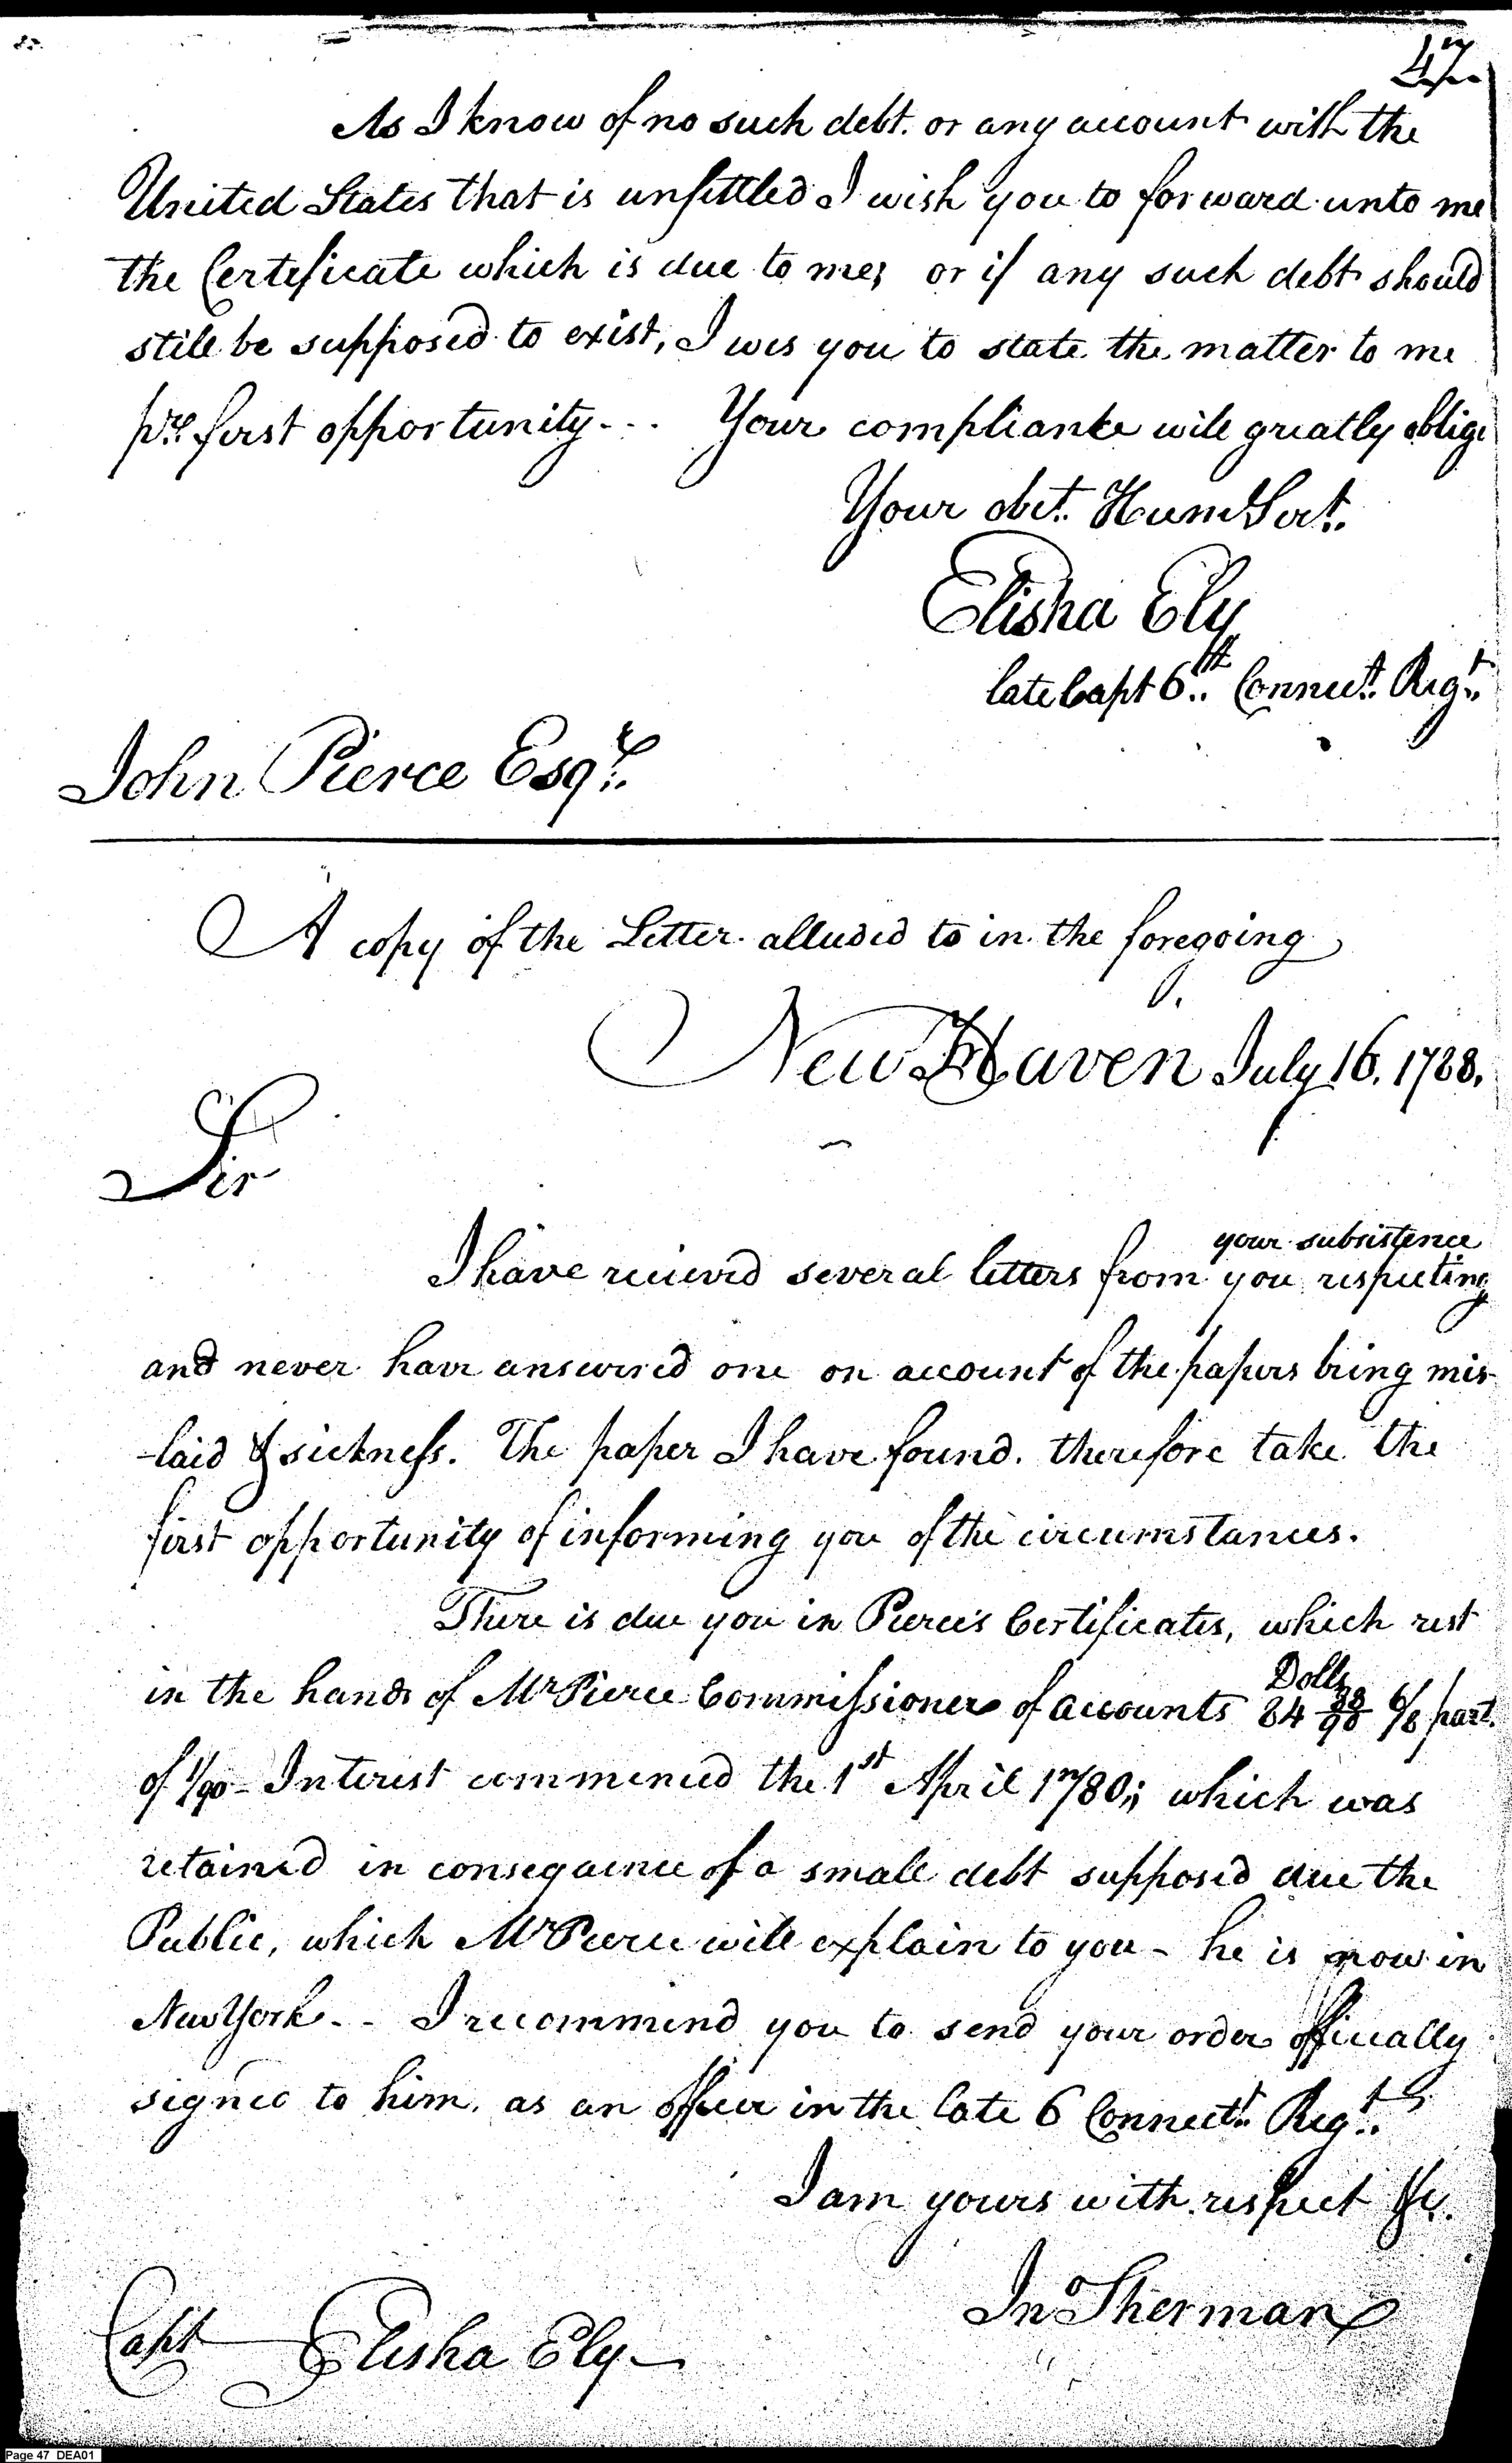 47
As I know of no such debt. or any account with the
United States that is unsettled I wish you to forward unto me
the Certificate which is due to me; or if any such debt should
still be supposed to exist, I wis you to state the matter to me
pr. first opportunity - - - Your compliance will greatly oblige
Your obet. Humb Sert.
Elisha Ely
late Capt 6th Connect. Regt.
John Pierce Esqr.
A copy of the Letter alluded to in the foregoing
New Haven July 16. 1788.
Sir
your subsistence
I have recieved several letters from you respecting
and never have answered one on account of the papers being mis-
-laid & sickness. The paper I have found. therefore take the
first opportunity of informing you of the circumstances.
There is due you in Pierce's Certificates, which rest
in the hands of Mr Pierce Commissioner of accounts 84 38/90 6/8 part.
Dolls
of 1/90 - Interest commenced the 1st April 1780; which was
retained in consequence of a small debt supposed due the
Public, which Mr Pierce will explain to you - he is now in
New York - - I recommend you to send your order officially
signed to him. as an officer in the late 6 Connect. Regt.
I am yours with respect &c.
Jno Sherman
Capt Elisha Ely
Page 47 DEA01